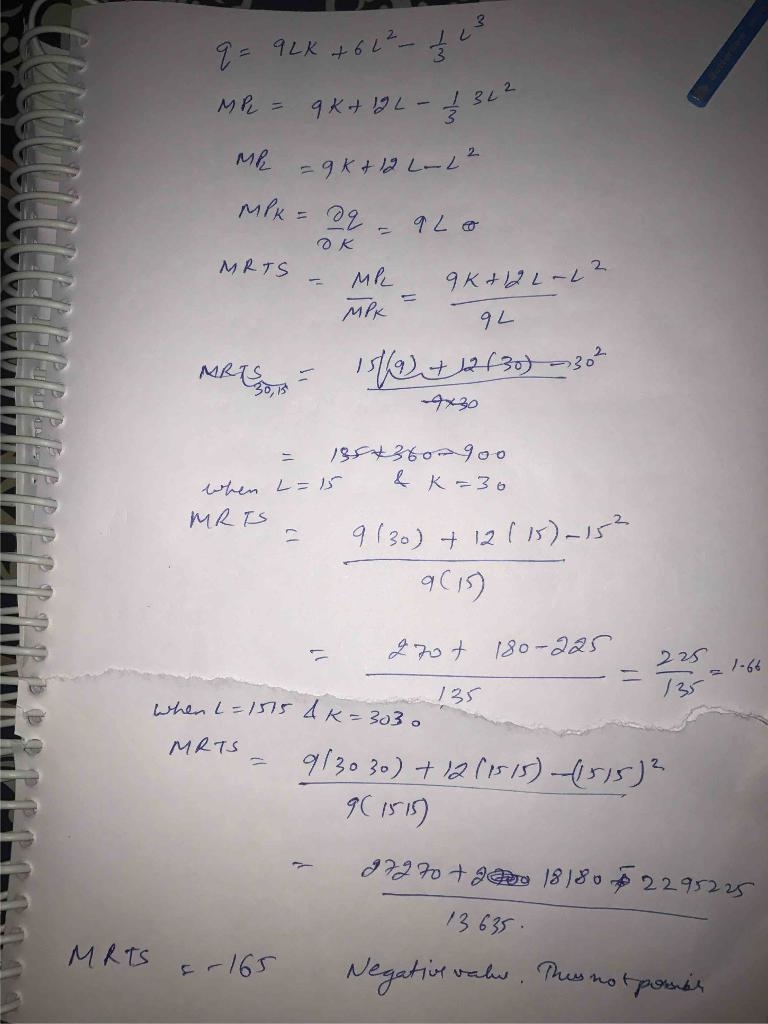 q = 9LK + 6L² - 1/3 L³
MPL = 9K + 12L - 1/3 3L²
MPL = 9K + 12L - L²
MPK = ∂q/∂K = 9L
MRTS = MPL/MPK = (9K + 12L - L²)/9L
MRTS 30,15 = (15(9) + 12(30) - 30²)/9×30
= 135 + 360 - 900
when L = 15 & K = 30
MRTS = (9(30) + 12(15) - 15²)/9(15)
= (270 + 180 - 225)/135 = 225/135 = 1.66
when L = 1515 & K = 3030
MRTS = (9(3030) + 12(1515) - (1515)²)/9(1515)
= (27270 + 18180 - 2295225)/13635.
MRTS = -165 Negative value. Thus not possible